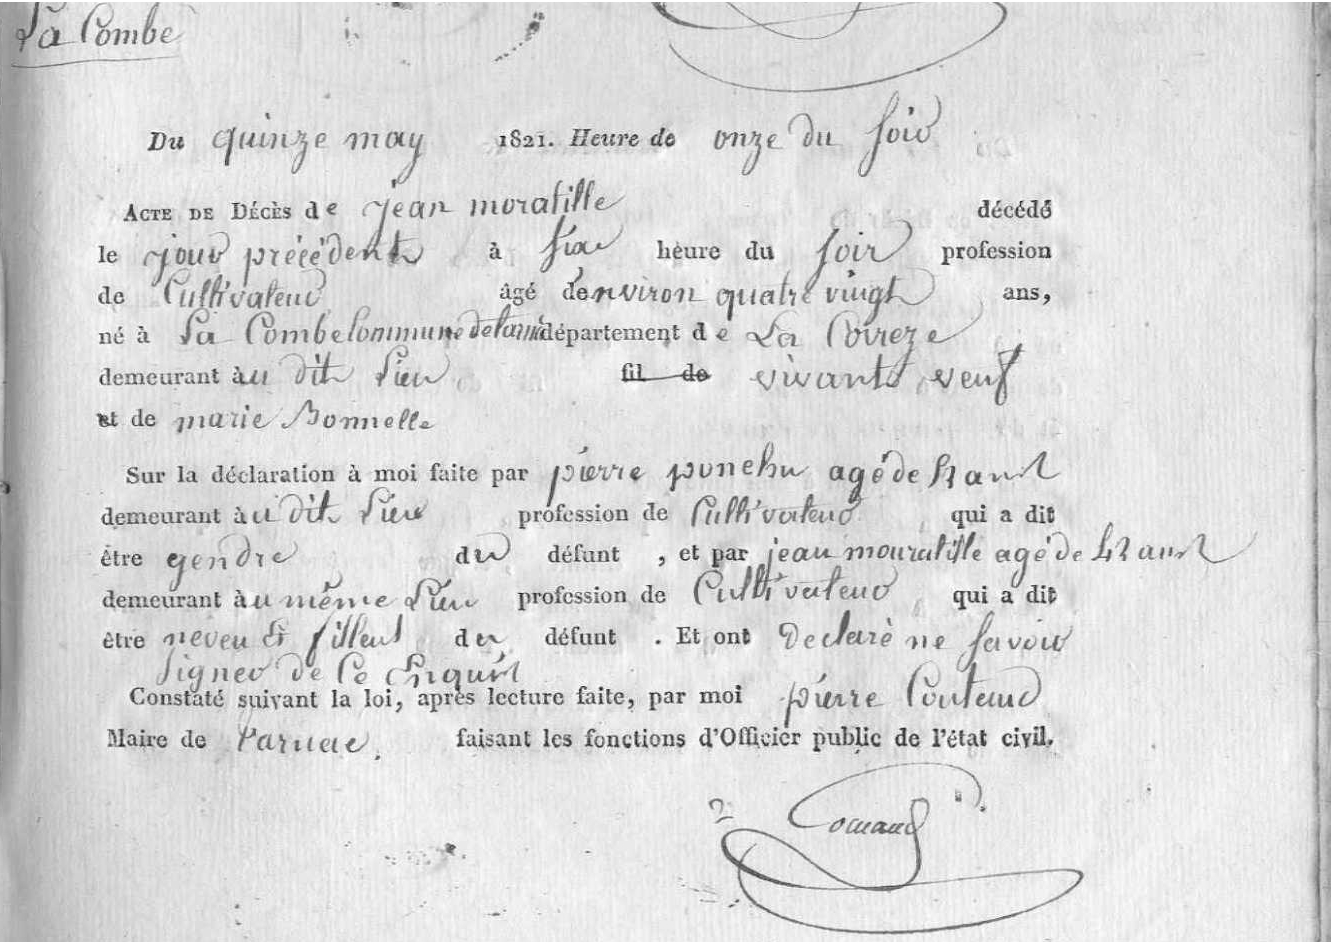 La Combe
Du quinze may 1821. Heure de onze du soir
ACTE DE DÉCÈS de jean moratille décédé
le jour précédent à six heure du soir profession
de Cultivateur âgé denviron quatre vingt ans,
né à La Combe Commune de département de La Coireze
demeurant àu dit Lieu fil de vivant veuf
et de marie Bonnelle
Sur la déclaration à moi faite par pierre ponchu agé de ans
demeurant àu dit Lieu profession de Cultivateur qui a dit
être gendre du défunt , et par jean mouratille agé de 42 ans
demeurant àu même Lieu profession de Cultivateur qui a dit
être neveu & filleul du défunt . Et ont Declaré ne savoir
signer de Ce Enquis
Constaté suivant la loi, après lecture faite, par moi pierre
Maire de faisant les fonctions d'Officier public de l'état civil.